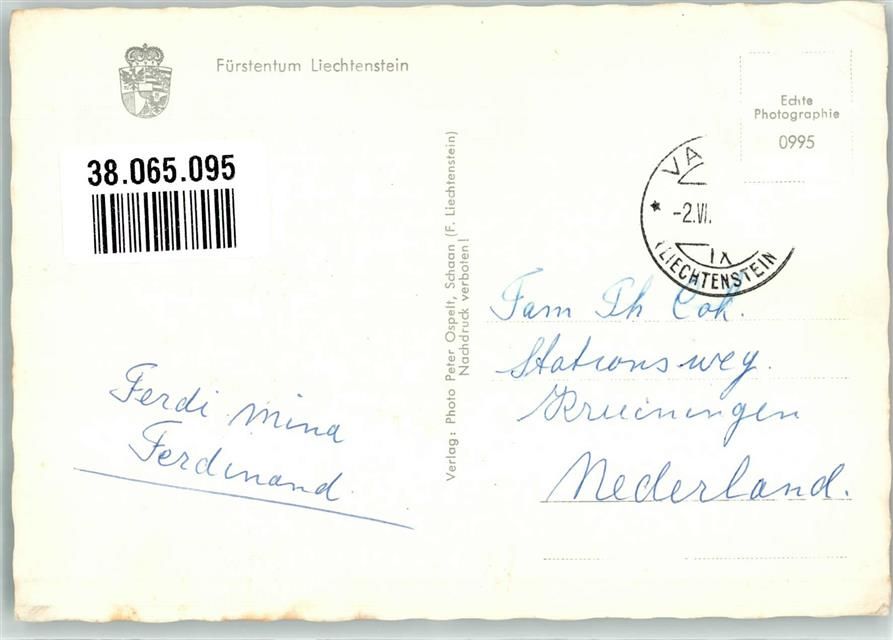 Fürstentum Liechtenstein
38.065.095
Echte
Photographie
0995
VA
-2.VI.
IX
LIECHTENSTEIN
Verlag: Photo Peter Ospelt, Schaan (F. Liechtenstein)
Nachdruck verboten!
Fam Th Cok.
Stationsweg.
Kruiningen
Nederland.
Ferdi Mina
Ferdinand